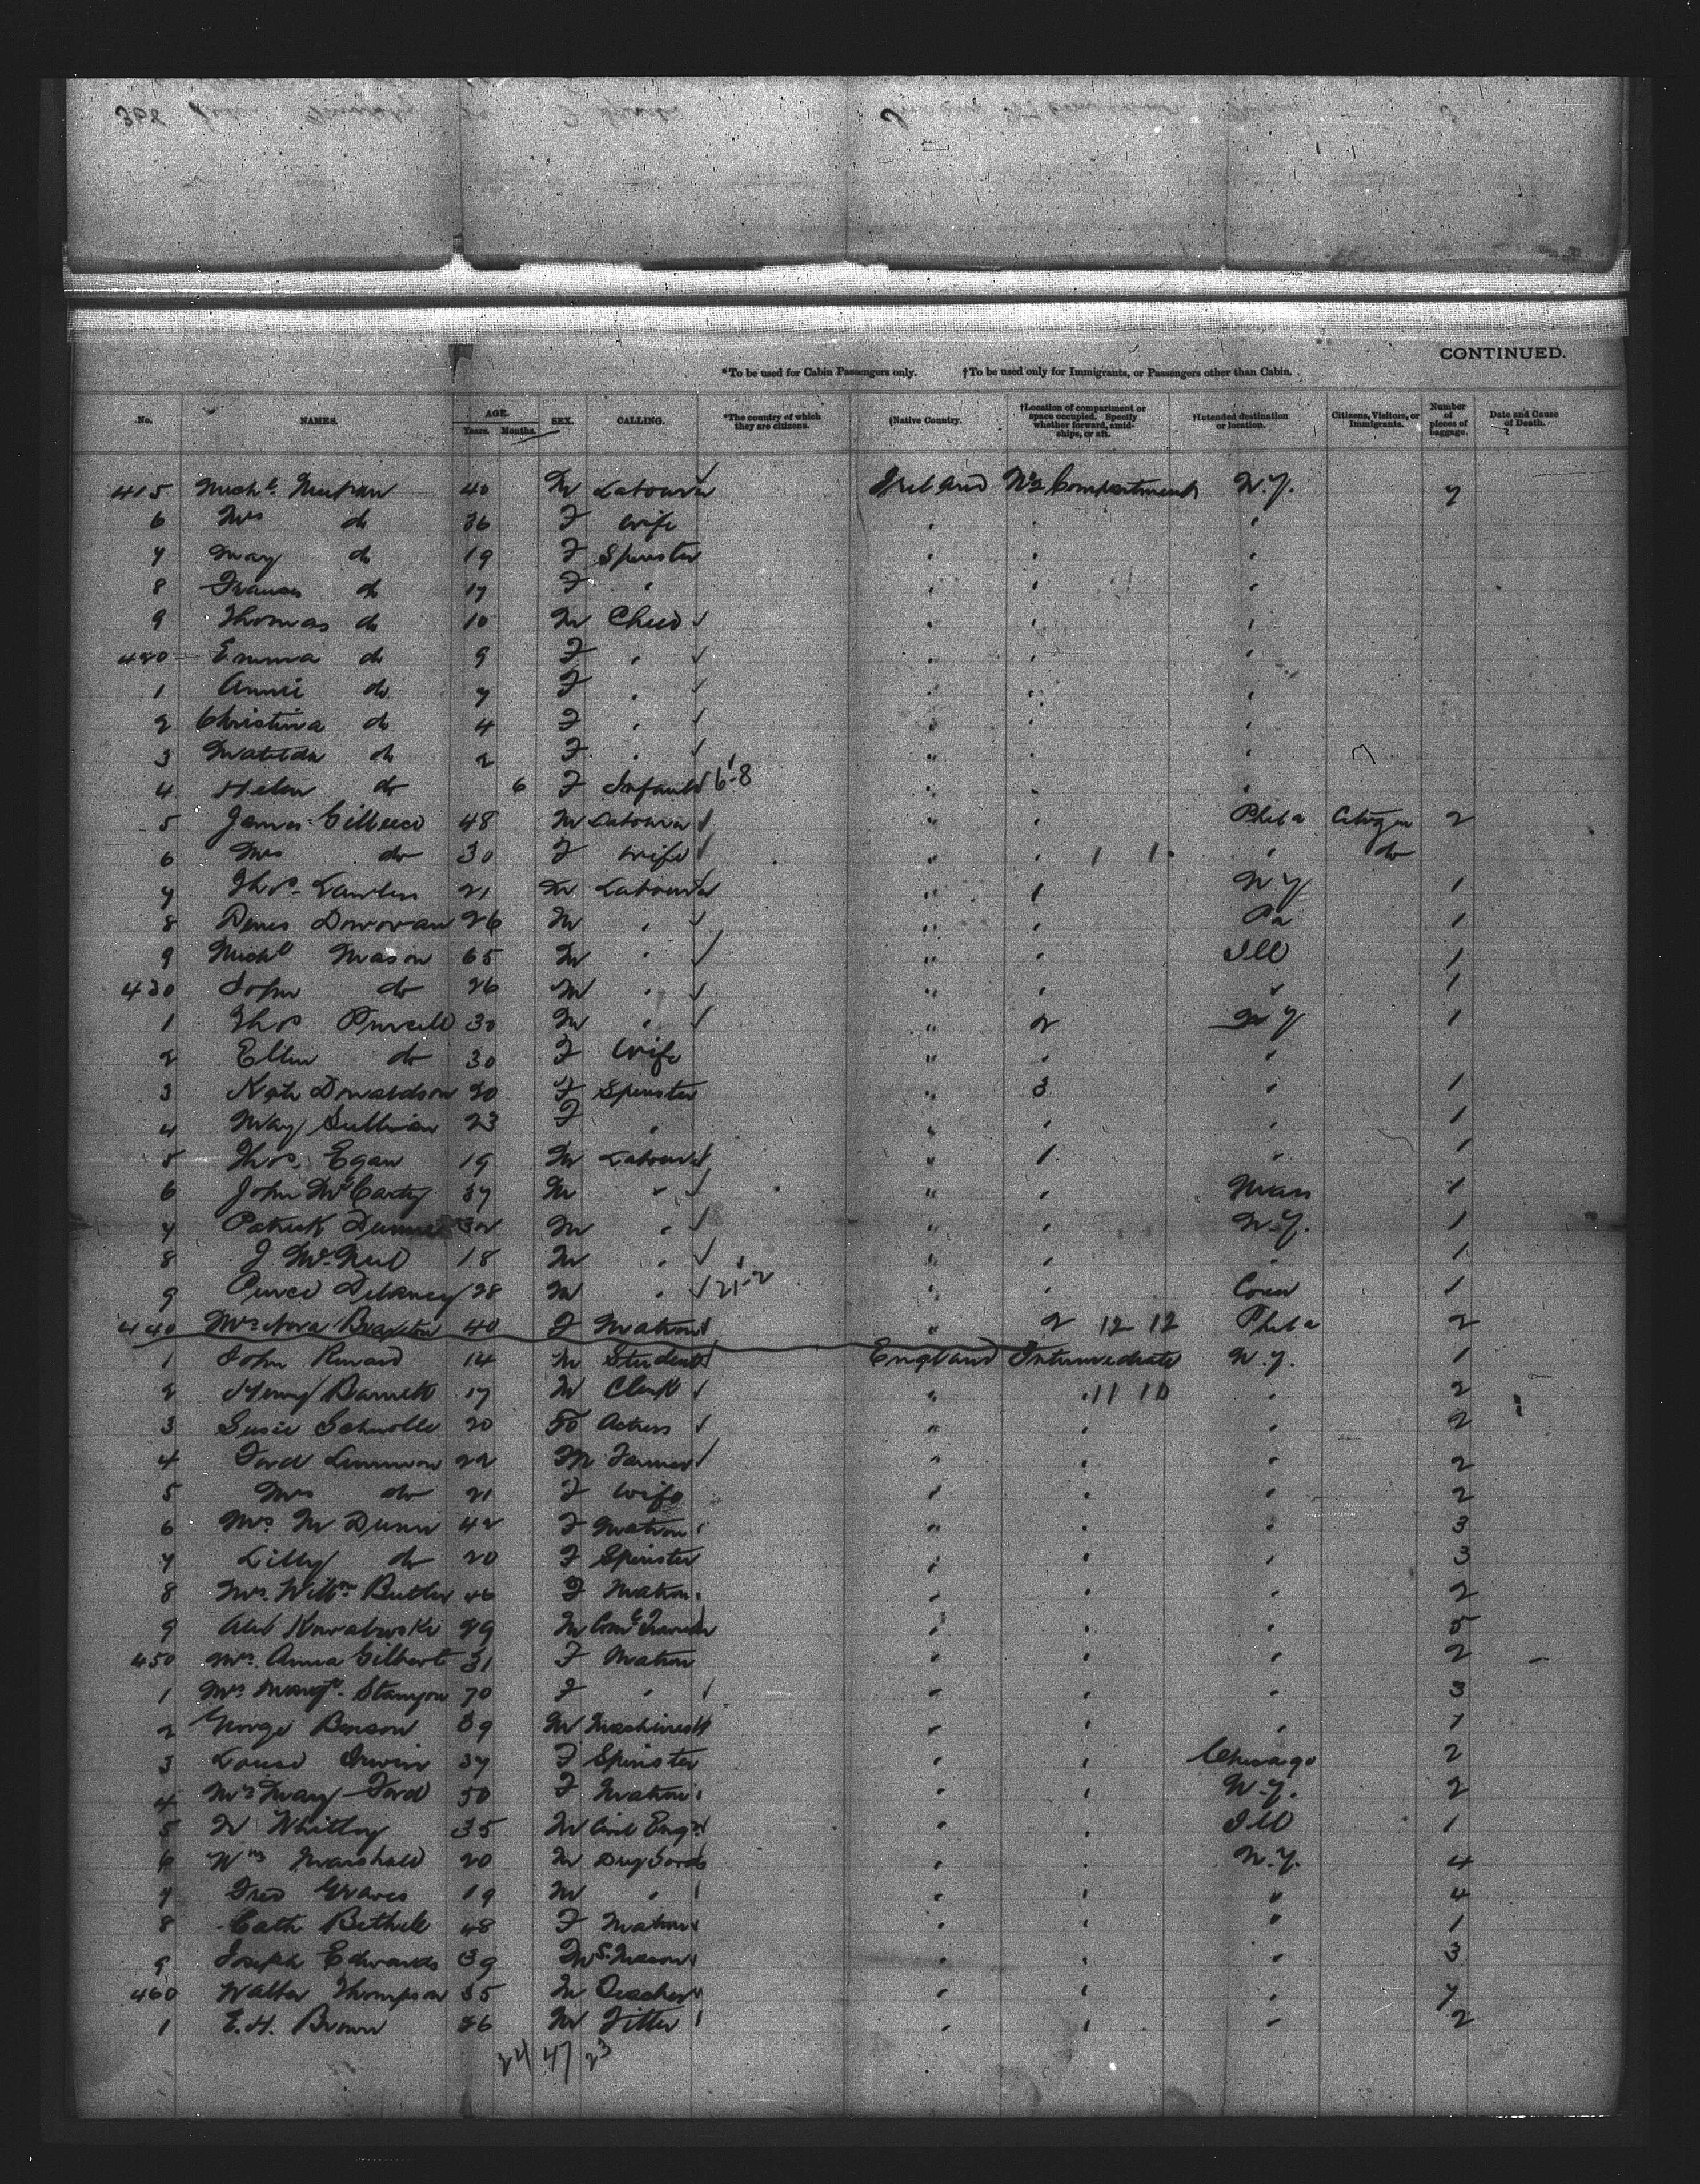 CONTINUED.
*To be used for Cabin Passengers only. †To be used only for Immigrants, or Passengers other than Cabin.
No. NAMES. AGE. Years. Months. SEX. CALLING. *The country of which they are citizens. †Native Country. †Location of compartment or space occupied. Specify whether forward, amidships, or aft. †Intended destination or location. Citizens, Visitors, or Immigrants. Number of pieces of baggage. Date and Cause of Death.
415 Michl 40 M Labourer Ireland No 2 Compartment N.Y. 7
6 Mrs do 36 F Wife " " "
7 Mary do 19 F Spinster " " "
8 Frances do 17 F " " " "
9 Thomas do 10 M Child " " "
420 Emma do 9 F " " " "
1 Annie do 7 F " " " "
2 Christina do 4 F " " " "
3 Matilda do 2 F " " " "
4 Helen do 6 F Infant 6-8 " " "
5 James 48 M Labourer " " Phila Citizen 2
6 Mrs do 30 F Wife " " 1 1 " do
7 Thos Lawless 21 M Labourer " 1 N Y 1
8 Denis Donovan 26 M " " " Pa 1
9 Michl Mason 65 M " " " Ill 1
430 John do 26 M " " " " 1
1 Thos Purcell 30 M " " 2 N Y 1
2 Ellen do 30 F Wife " " "
3 Kate Donaldson 20 F Spinster " 3 " 1
4 May Sullivan 23 F " " " " 1
5 Thos. Egan 19 M Labourer " 1 " 1
6 John McCarty 37 M " " " Mass 1
7 Patrick 32 M " " " N.Y. 1
8 J. McNeil 18 M " " " " 1
9 Pierce Delaney 28 M " 21-2 " " Conn 1
440 Mrs Nora Braxton 40 F Matron " 2 12 12 Phila 2
1 John 14 M Student England Intermediate N.Y. 1
2 Henry Barnett 17 M Clerk " " 11 10 " 2
3 Susie 20 F Actress " " " 2
4 Ford 22 M Farmer " " " 2
5 Mrs do 21 F Wife " " " 2
6 Mrs M Dunn 42 F Matron " " " 3
7 Lilly do 20 F Spinster " " " 3
8 Mrs. Willm Butler 46 F Matron " " " 2
9 Kowalewski 29 M Coml Traveler " " " 5
450 Mrs. Anna Gilbert 31 F Matron " " " 2
1 Mrs Margt. Stanyon 70 F " " " " 3
2 George Benson 39 M Machinest " " " 1
3 Louise Irwin 37 F Spinster " " Chicago 2
4 Mrs Mary Ford 50 F Matron " " N.Y. 2
5 W Whitley 35 M Civil Engr " " Ill 1
6 Wm Marshall 20 M Dry Goods " " N.Y. 4
7 Fred Graves 19 M " " " " 4
8 Cath Bethell 48 F Matron " " " 1
9 Joseph Edwards 39 M S. Mason " " " 3
460 Walter Thompson 35 M Teacher " " " 7
1 E.H. Brown 26 M Fitter " " " 2
24 47 23